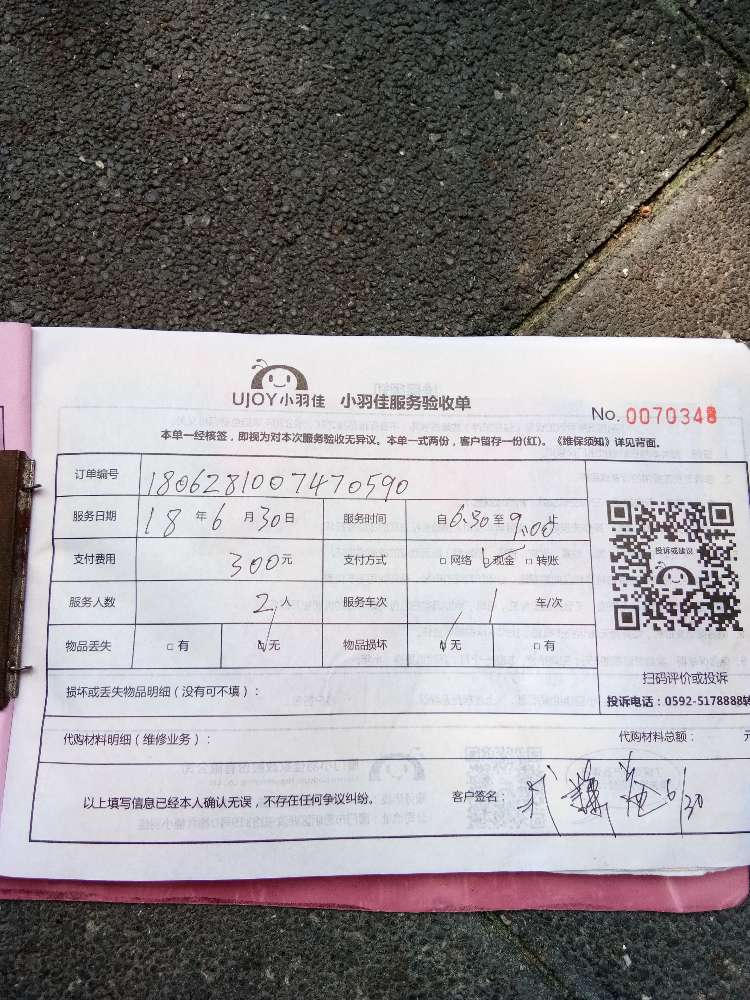 UJOY小羽佳 小羽佳服务验收单
No. 0070348
本单一经核签，即视为对本次服务验收无异议。本单一式两份，客户留存一份(红)。《维保须知》详见背面。
订单编号 1806281007470590
服务日期 18年6月30日 服务时间 自6:30至9:00止
支付费用 300元 支付方式 □网络 □现金 □转账
服务人数 2人 服务车次 1 车/次
物品丢失 □有 □无 物品损坏 □无 □有
投诉或建议
扫码评价或投诉
投诉电话：0592-5178888转
损坏或丢失物品明细（没有可不填）：
代购材料明细（维修业务）： 代购材料总额： 元
以上填写信息已经本人确认无误，不存在任何争议纠纷。 客户签名： 6/30